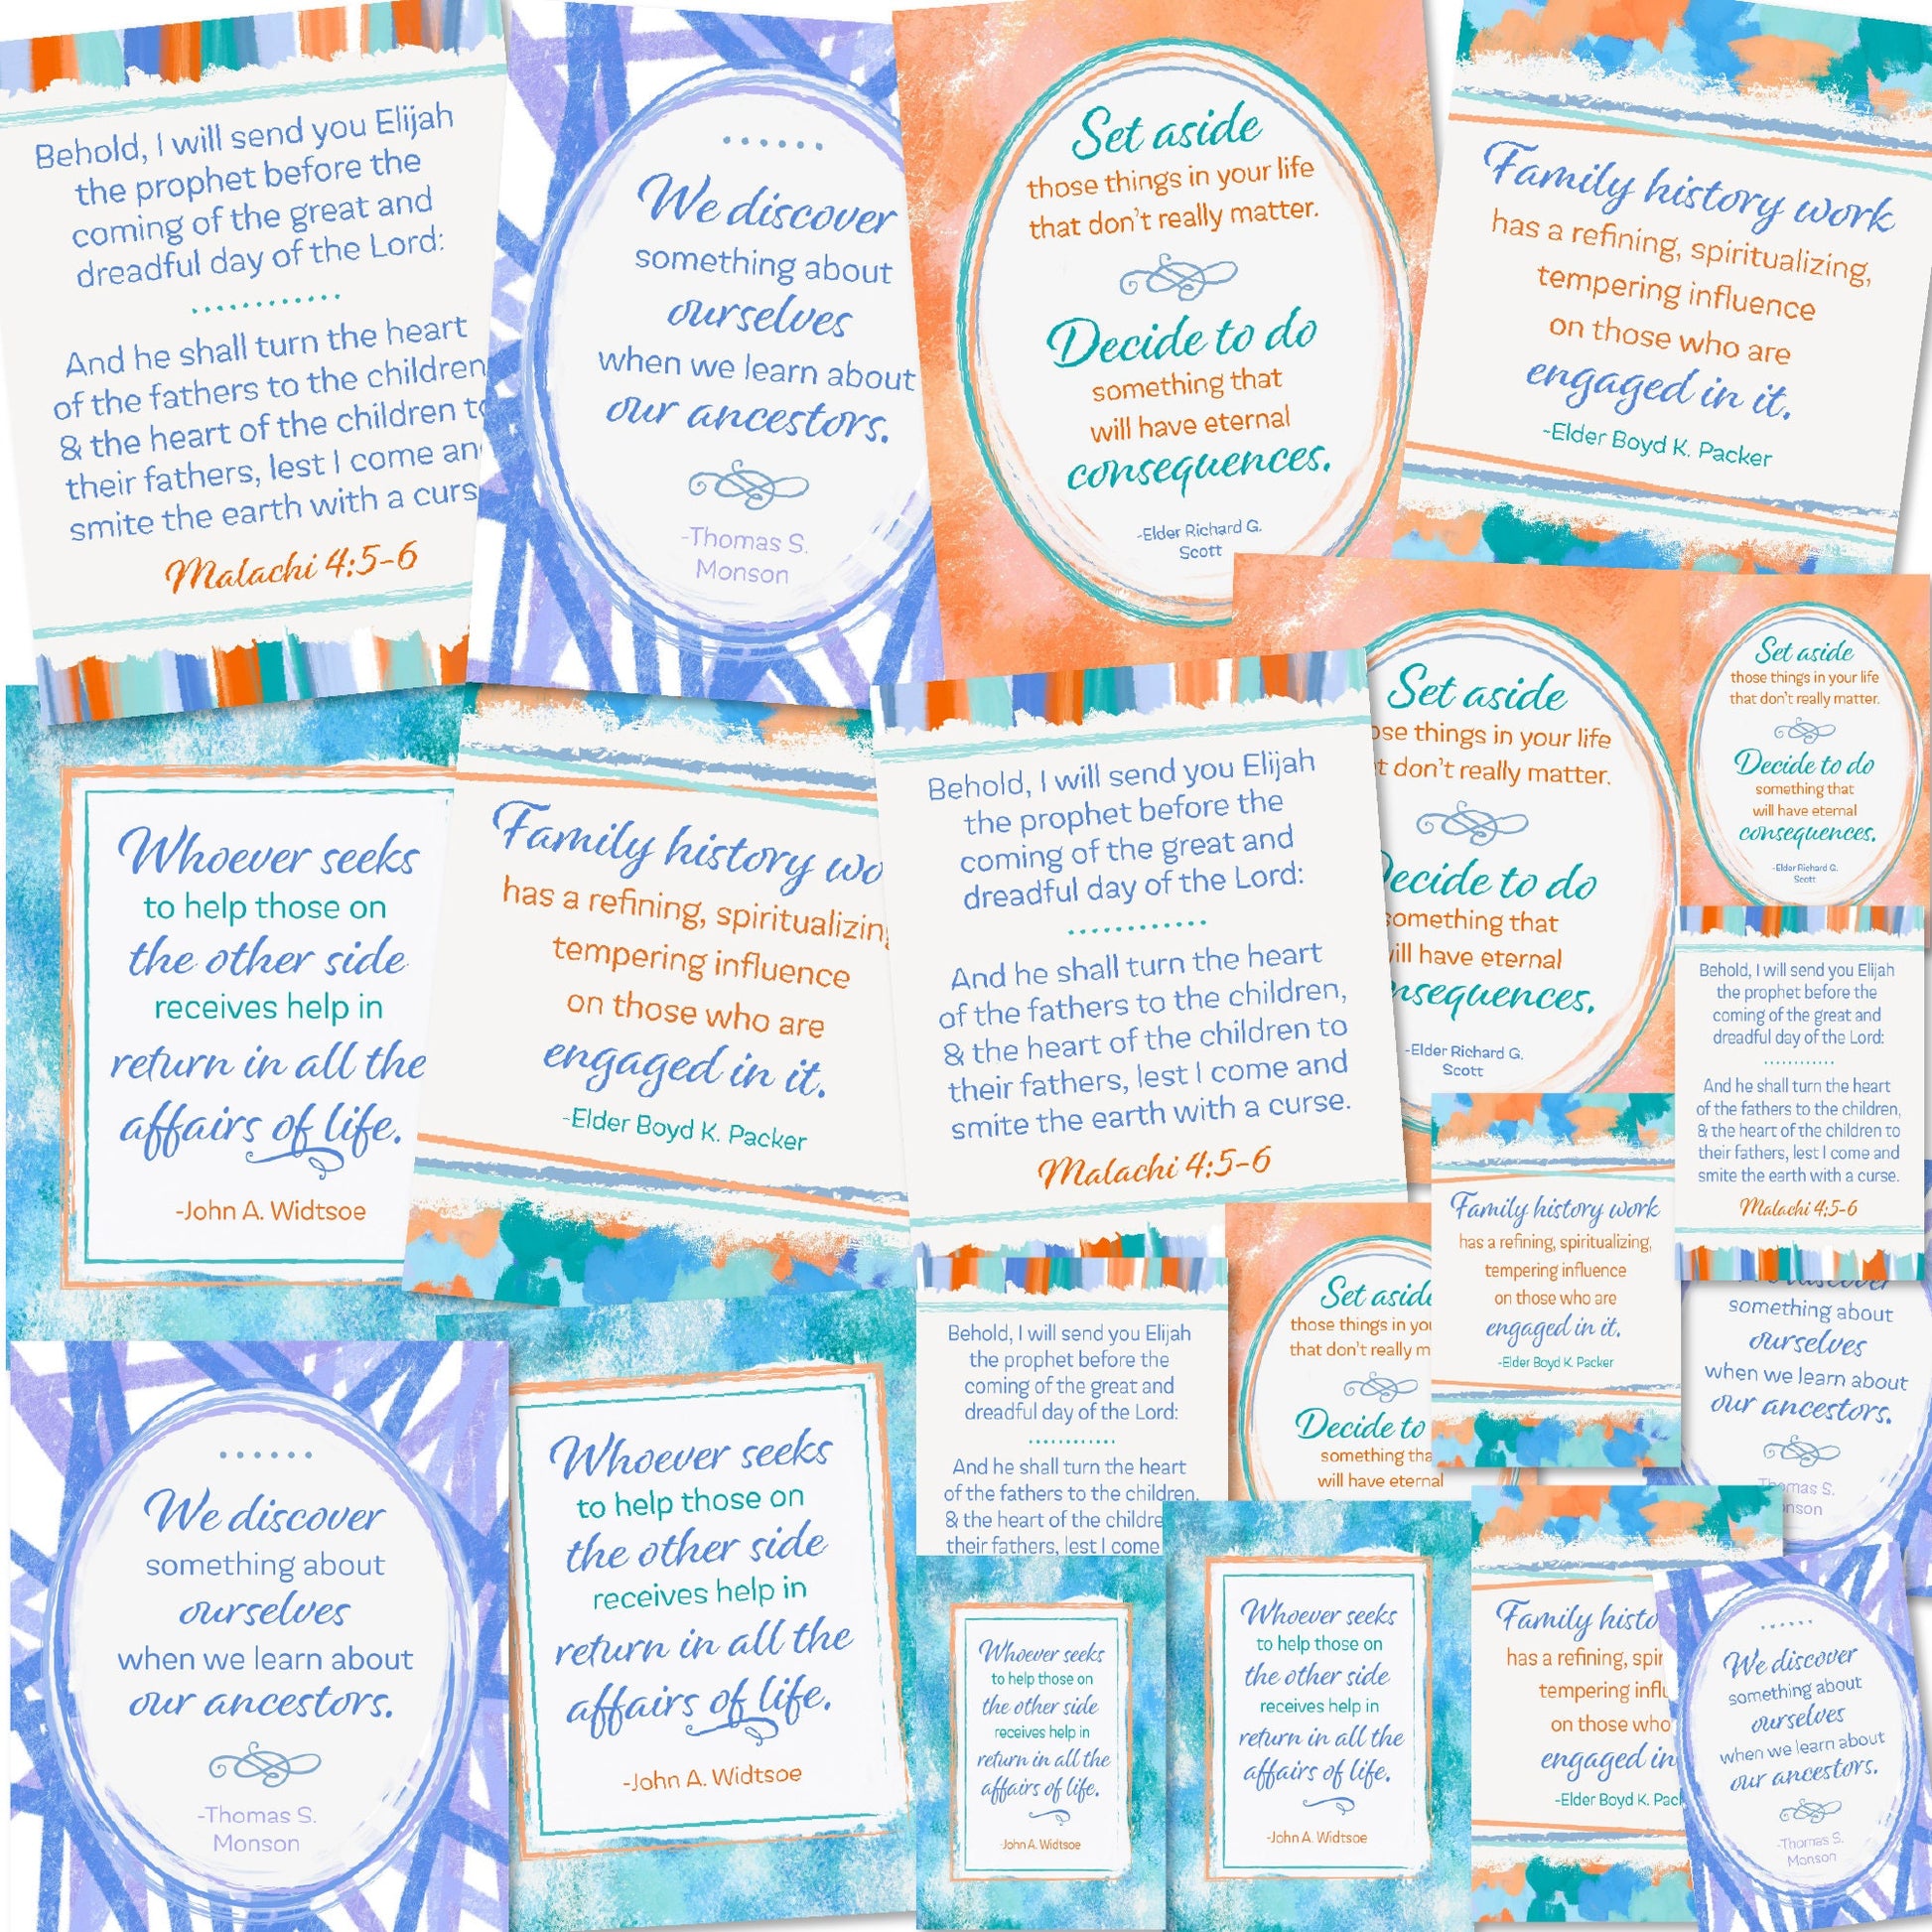 Behold, I will send you Elijah
the prophet before the
coming of the great and
dreadful day of the Lord:
And he shall turn the heart
of the fathers to the children
& the heart of the children to
their fathers, lest I come
smite the earth with a
Malachi 4:5-6
We discover
something about
ourselves
when we learn about
our ancestors.
-Thomas S.
Monson
Set aside
those things in your life
that don't really matter.
Decide to do
something that
will have eternal
consequences.
-Elder Richard G.
Scott
Family history work
has a refining, spiritualizing,
tempering influence
on those who are
engaged in it.
-Elder Boyd K. Packer
Whoever seeks
to help those on
the other side
receives help in
return in all the
affairs of life.
-John A. Widtsoe
Family history
has a refining,
tempering influence
on those who are
engaged in it.
-Elder Boyd K. Packer
Behold, I will send you Elijah
the prophet before the
coming of the great and
dreadful day of the Lord:
And he shall turn the heart
of the fathers to the children,
& the heart of the children to
their fathers, lest I come and
smite the earth with a curse.
Malachi 4:5-6
Set aside
things in your life
don't really matter.
to do
something that
will have eternal
-Elder Richard G.
Scott
Set aside
those things in your life
that don't really matter.
Decide to do
something that
will have eternal
consequences.
-Elder Richard G.
Scott
Behold, I will send you Elijah
the prophet before the
coming of the great and
dreadful day of the Lord:
And he shall turn the heart
of the fathers to the children,
& the heart of the children to
their fathers, lest I come and
smite the earth with a curse.
Malachi 4:5-6
We discover
something about
ourselves
when we learn about
our ancestors.
-Thomas S.
Monson
Whoever seeks
to help those on
the other side
receives help in
return in all the
affairs of life.
-John A. Widtsoe
Behold, I will send you Elijah
the prophet before the
coming of the great and
dreadful day of the Lord:
And he shall turn the heart
of the fathers to the children,
& the heart of the
their fathers, lest I come
Set aside
those things in
that don't really
Decide to
something
will have eternal
Family history work
has a refining, spiritualizing,
tempering influence
on those who are
engaged in it.
-Elder Boyd K. Packer
something about
ourselves
when we learn about
our ancestors.
S.
Whoever seeks
to help those on
the other side
receives help in
return in all the
affairs of life.
-John A. Widtsoe
Whoever seeks
to help those on
the other side
receives help in
return in all the
affairs of life.
-John A. Widtsoe
Family
has a refining,
tempering
on those who
engaged in
-Elder Boyd K.
We discover
something about
ourselves
when we learn about
our ancestors.
-Thomas S.
Monson